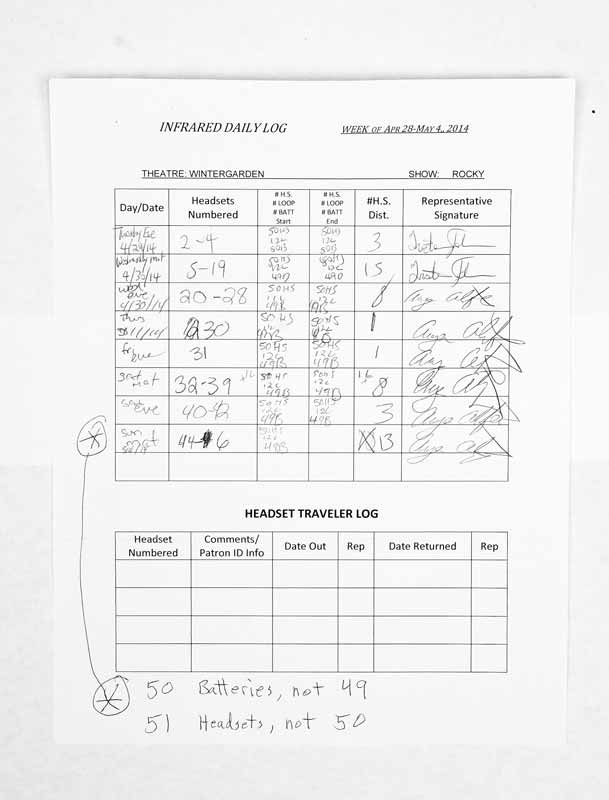 INFRARED DAILY LOG WEEK OF APR 28-MAY 4, 2014
THEATRE: WINTERGARDEN SHOW: ROCKY
Day/Date Headsets Numbered # H.S. # LOOP # BATT Start # H.S. # LOOP # BATT End #H.S. Dist. Representative Signature
Tuesday Eve 4/29/14 2-4 50HS 12L 50B 50HS 12L 50B 3
Wednesday mat 4/30/14 5-19 50HS 12L 49B 50HS 12L 49B 15
wed eve 4/30/14 20-28 50HS 12L 49B 50HS 12L 49B 8
Thus 5/1/14 30 50HS 12L 49B 50HS 12L 1
fri eve 31 50HS 12L 49B 50HS 12L 49B 1
sat mat 32-39 50HS 12L 49B 50HS 12L 49B 8
sat eve 40-42 50HS 12L 49B 50HS 12L 49B 3
sun mat 44- 6 50HS 12L 49B 13
HEADSET TRAVELER LOG
Headset Numbered Comments/ Patron ID Info Date Out Rep Date Returned Rep
50 Batteries, not 49
51 Headsets, not 50